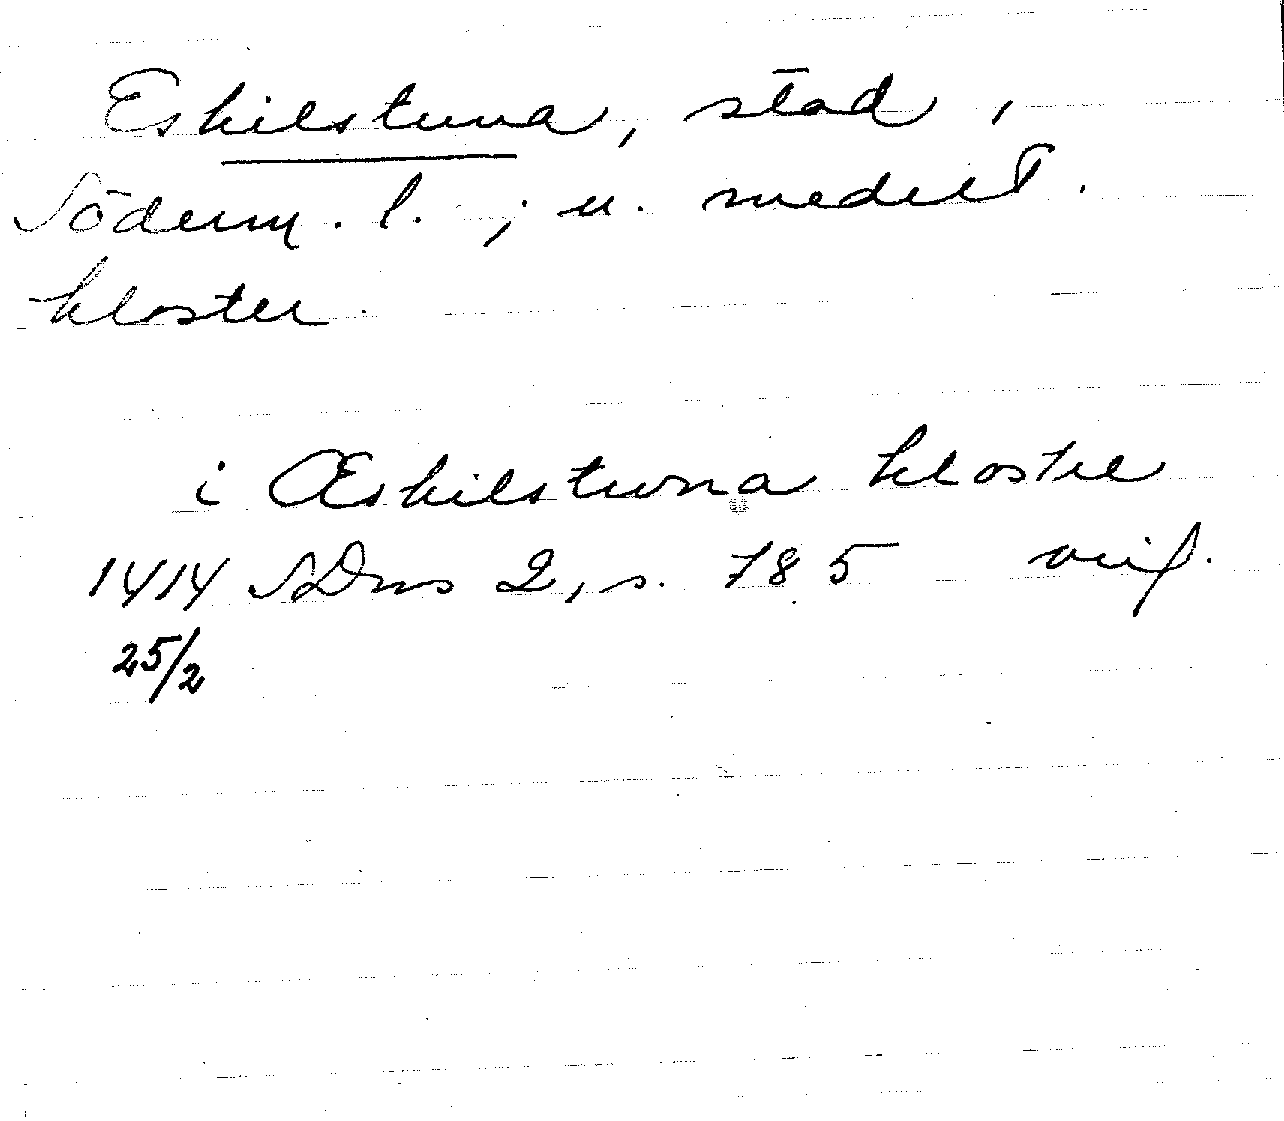 Eskilstuna, stad,
Söderm. l.; u. medelt.
kloster.
i Æskilstuna kloster
1414 SDns 2, s. 785 orig.
25/2